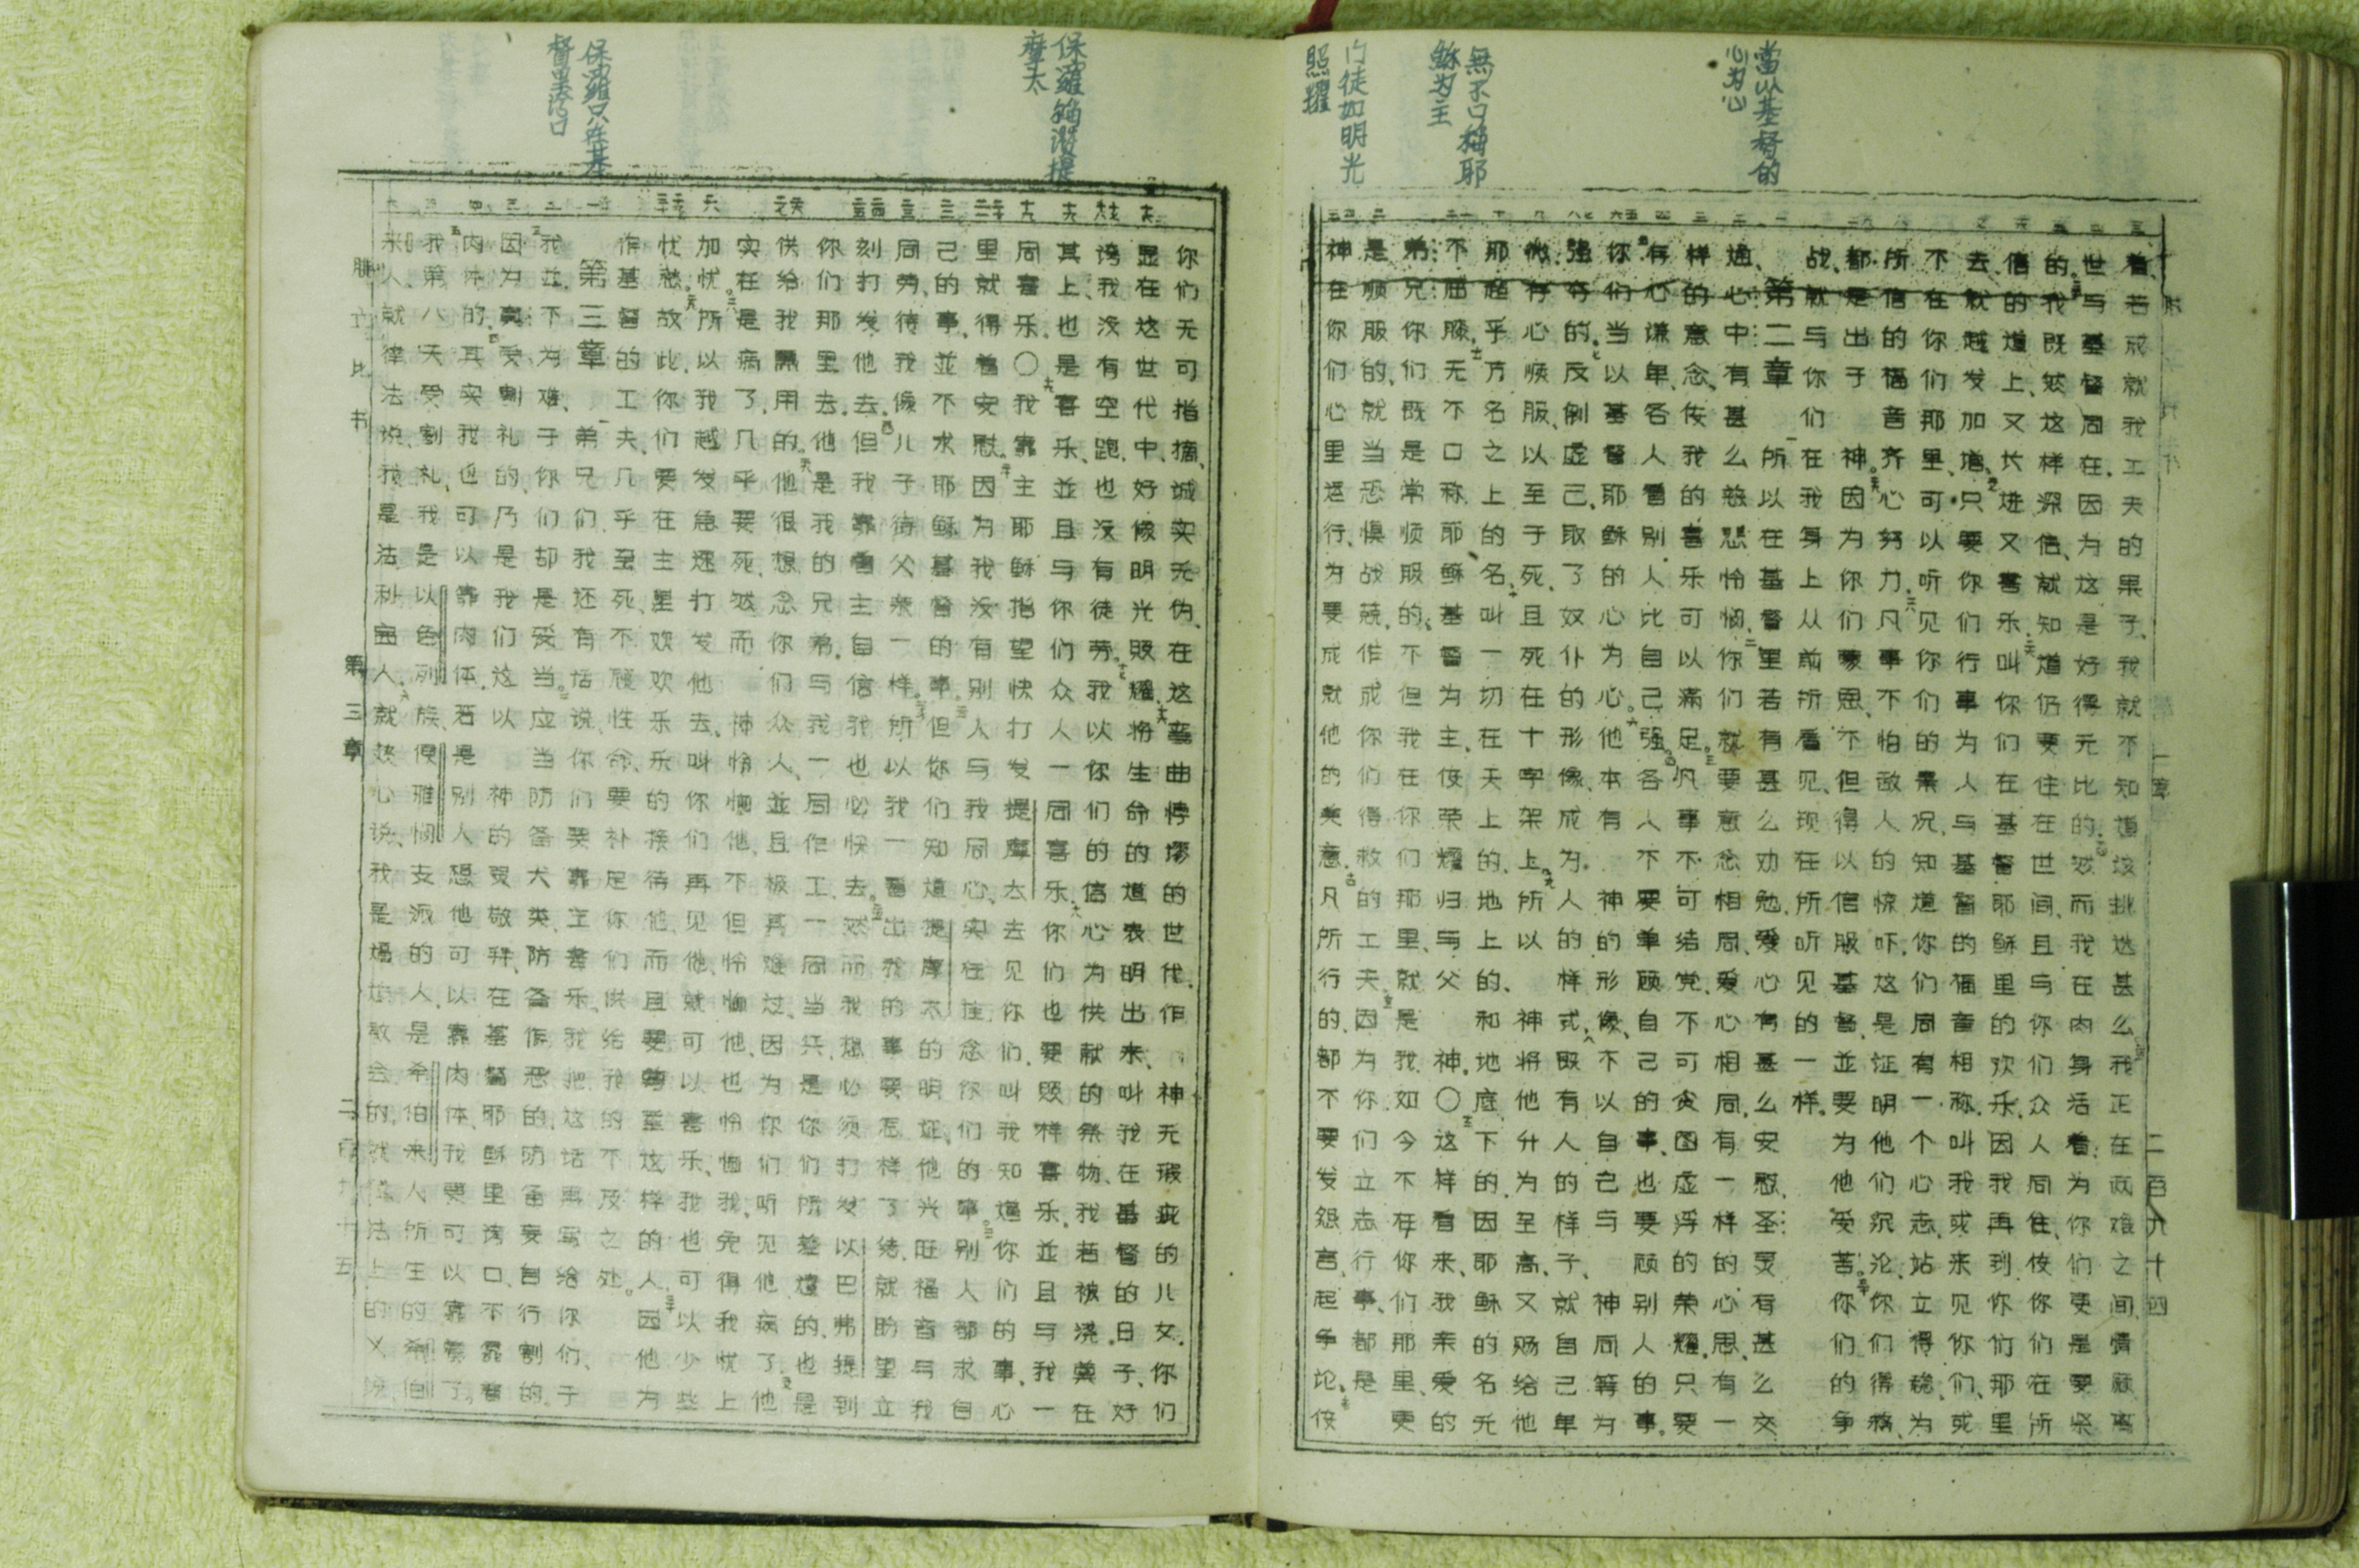 當以基督的
心为心
無不口稱耶
穌为主
门徒如明光
照耀
着、若成就我工夫的果子、我就不知道该挑选甚么。我正在两难之间、情愿离
世与基督同在、因为这是好得无比的。然而我在肉身活着、为你们更是要紧
的。我既然这样深信、就知道仍要住在世间、且与你们众人同住、使你们在所
信的道上、又长进又喜乐。叫你们在基督耶稣里的欢乐、因我再到你们那里
去、就越发加增。只要你们行事为人与基督的福音相称、叫我或来见你们、或
不在你们那里、可以听见你们的景况、知道你们同有一个心志、站立得稳、为
所信的福音齐心努力、凡事不怕敌人的惊吓、这是证明他们沉沦、你们得救、
都是出于神。因为你们蒙恩、不但得以信服基督、並要为他受苦。你们的争
战、就与你们在我身上从前所看见、现在所听见的一样。
第二章 所以在基督里若有甚么劝勉、爱心有甚么安慰、圣灵有甚么交
通、心中有甚么慈悲怜悯、你们就要意念相同、爱心相同、有一样的心思、有一
样的意念、使我的喜乐可以满足。凡事不可结党、不可贪图虚浮的荣耀、只要
存心谦卑、各人看别人比自己强。各人不要单顾自己的事、也要顾别人的事。
你们当以基督耶稣的心为心。他本有神的形像、不以自己与神同等为
强夺的、反倒虚己、取了奴仆的形像、成为人的样式、既有人的样子、就自己卑
微、存心顺服、以至于死、且死在十字架上。所以神将他升为至高、又赐给他
那超乎万名之上的名、叫一切在天上的、地上的、和地底下的、因耶稣的名无
不屈膝、无不口称耶稣基督为主、荣耀归与父神。〇这样看来、我亲爱的
弟兄、你们既是常顺服的、不但我在你们那里、就是我如今不在你们那里、更
是顺服的、就当恐惧战兢、作成你们得救的工夫、因为你们立志行事、都是
神在你们心里运行、为要成就他的美意。凡所行的、都不要发怨言、起争论、使
二百九十四
保羅銷發提
摩太
保羅只在基
督里夸口
你们无可指摘、诚实无伪、在这弯曲悖谬的世代、作神无瑕疵的儿女、你们
显在这世代中、好像明光照耀、将生命的道表明出来、叫我在基督的日子、好
夸我没有空跑、也没有徒劳。我以你们的信心为供献的祭物、我若被浇奠在
其上、也是喜乐、並且与你们众人一同喜乐。你们也要照样喜乐、並且与我一
同喜乐。〇我靠主耶稣指望快打发提摩太去见你们、叫我知道你们的事、心
里就得着安慰。因为我没有别人与我同心、实在挂念你们的事。别人都求自
己的事、並不求耶稣基督的事。但你们知道提摩太的明证、他兴旺福音与我
同劳、待我像儿子待父亲一样。所以我一看出我的事要怎样了结、就盼望立
刻打发他去。但我靠着主自信我也必快去。然而我想必须打发以巴弗提到
你们那里去。他是我的兄弟、与我一同作工、一同当兵、是你们所差遣的、也是
供给我需用的。他很想念你们众人、並且极其难过、因为你们听见他病了。他
实在是病了、几乎要死、然而神怜恤他、不但怜恤他、也怜恤我、免得我忧上
加忧。所以我越发急速打发他去、叫你们再见他、就可以喜乐、我也可以少些
忧愁。故此你们要在主里欢欢乐乐的接待他、而且要尊重这样的人、因他为
作基督的工夫、几乎至死、不顾性命、要补足你们供给我的不及之处。
第三章 弟兄们、我还有话说、你们要靠主喜乐。我把这话再写给你们、于
我並不为难、于你们却是妥当。应当防备犬类、防备作恶的、防备妄自行割的。
因为真受割礼的、乃是我们这以神的灵敬拜、在基督耶稣里夸口、不靠着
肉体的。其实我也可以靠肉体、若是别人想他可以靠肉体、我更可以靠着了。
我第八天受割礼、我是以色列族、便雅悯支派的人、是希伯来人所生的希伯
来人、就律法说、我是法利赛人、就热心说、我是逼迫教会的、就律法上的义说、
腓立比书 第三章 二百九十五